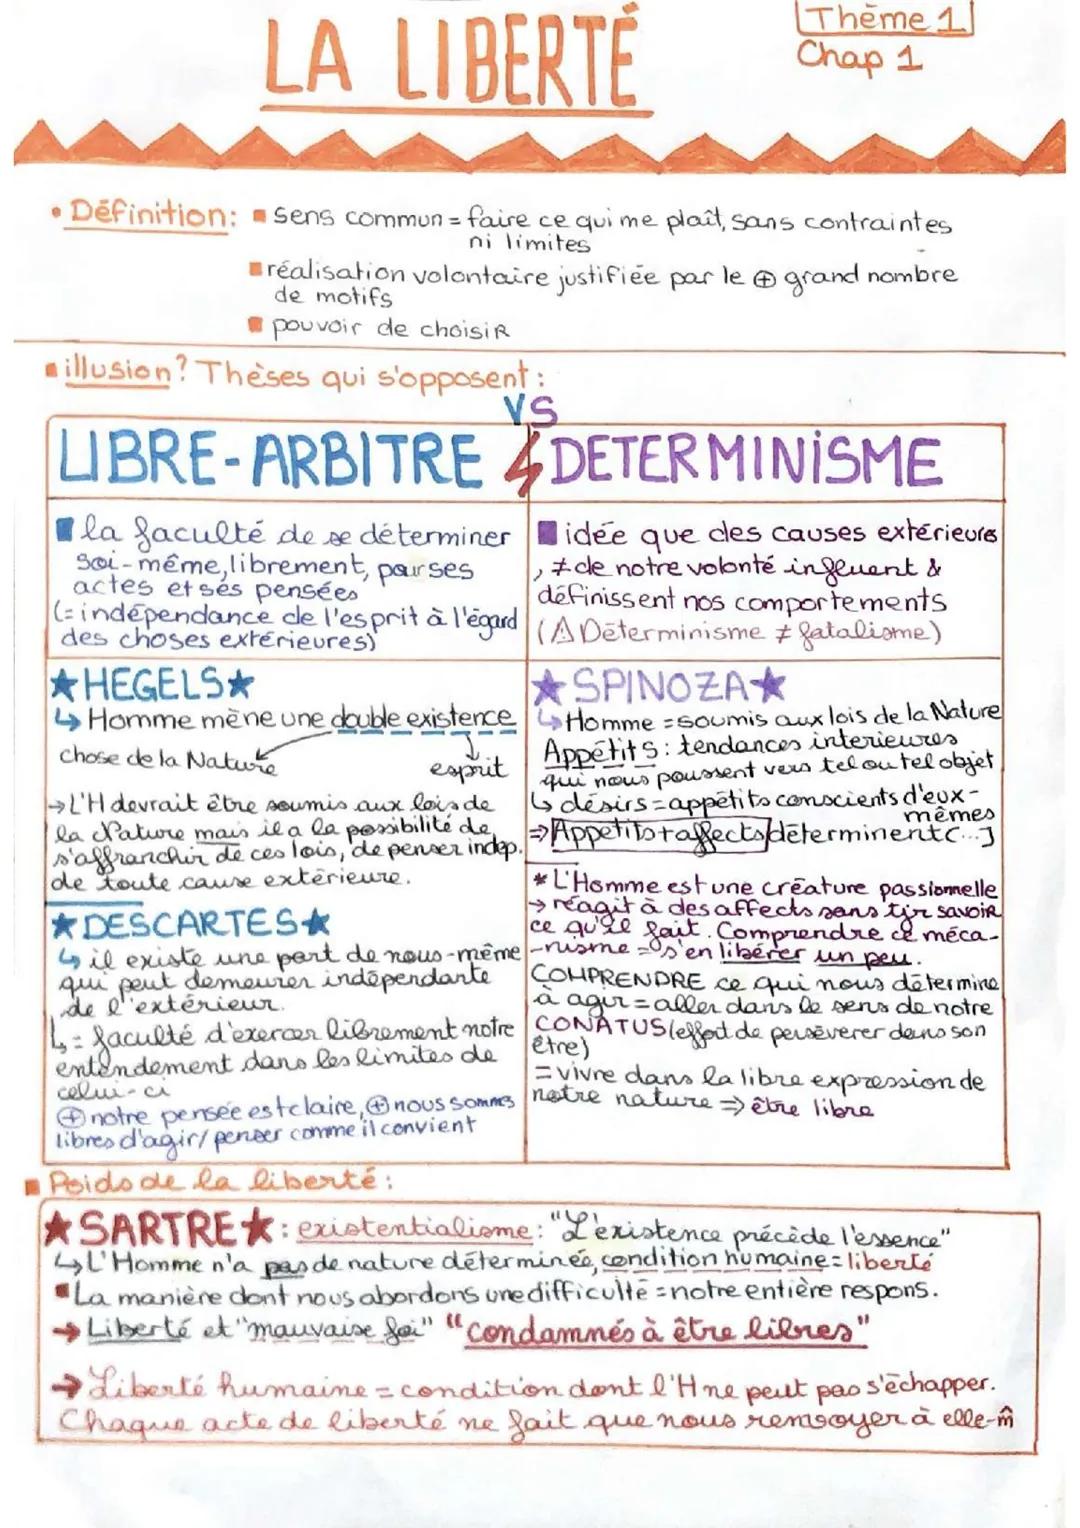 LA LIBERTÉ
Thème 1
Chap 1
• Définition: ▪ sens commun = faire ce qui me plaît, sans contraintes
ni limites
▪ réalisation volontaire justifiée par le ⊕ grand nombre
de motifs
▪ pouvoir de choisiR
▪ illusion? Thèses qui s'opposent :
VS
LIBRE-ARBITRE
▪ la faculté de se déterminer
soi-même, librement, par ses
actes et ses pensées
(= indépendance de l'esprit à l'égard
des choses extérieures)
★ HEGELS ★
↳ Homme mène une double existence
chose de la Nature
esprit
→ L'H devrait être soumis aux lois de
la Nature mais il a la possibilité de
s'affranchir de ces lois, de penser indep.
de toute cause extérieure.
★ DESCARTES ★
↳ il existe une part de nous-même
qui peut demeurer indépendante
de l'extérieur.
↳ = faculté d'exercer librement notre
entendement dans les limites de
celui-ci
⊕ notre pensée est claire, ⊕ nous sommes
libres d'agir/ penser comme il convient
DETERMINiSME
▪ idée que des causes extérieures
, ≠ de notre volonté influent &
définissent nos comportements
(⚠ Déterminisme ≠ fatalisme)
★ SPINOZA ★
↳ Homme = soumis aux lois de la Nature
Appétits : tendances interieures
qui nous poussent vers tel ou tel objet
↳ désirs = appétits conscients d'eux-
mêmes
⇒ Appetits + affects déterminent (...]
* L'Homme est une créature passionnelle
→ réagit à des affects sans tjr savoir
ce qu'il fait. Comprendre ce méca-
-nisme = s'en libérer un peu.
COMPRENDRE ce qui nous détermine
à agir = aller dans le sens de notre
CONATUS (effort de persévérer dans son
être)
= vivre dans la libre expression de
notre nature ⇒ être libre
▪ Poids de la liberté :
★ SARTRE ★ : existentialisme : "L'existence précède l'essence"
↳ L'Homme n'a pas de nature déterminée, condition humaine = liberté
▪ La manière dont nous abordons une difficulté = notre entière respons.
→ Liberté et "mauvaise foi" "condamnés à être libres"
→ Liberté humaine = condition dont l'H ne peut pas s'échapper.
Chaque acte de liberté ne fait que nous renvoyer à elle-m̂